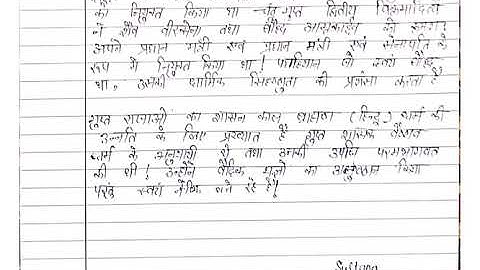 को नियुक्त किया था चन्द्रगुप्त द्वितीय विक्रमादित्य
ने शैव वीरसेना तथा बौद्ध को क्रमशः
अपने प्रधान मंत्री एवं प्रधान मंत्री एवं सेनापति के
रूप में नियुक्त किया था! फाहियान जो स्वयं बौद्ध
था. उसकी धार्मिक सहिष्णुता की प्रशंसा करता है
गुप्त राजाओं का शासन काल ब्राह्मण (हिन्दू) धर्म की
उन्नति के लिए प्रख्यात है गुप्त शासक वैष्णव
धर्म के अनुयायी थे तथा उनकी उपाधि परमभागवत
की थी! उन्होंने वैदिक यज्ञो का अनुष्ठान किया
परंतु स्वयं बने रहे है!
Sultana